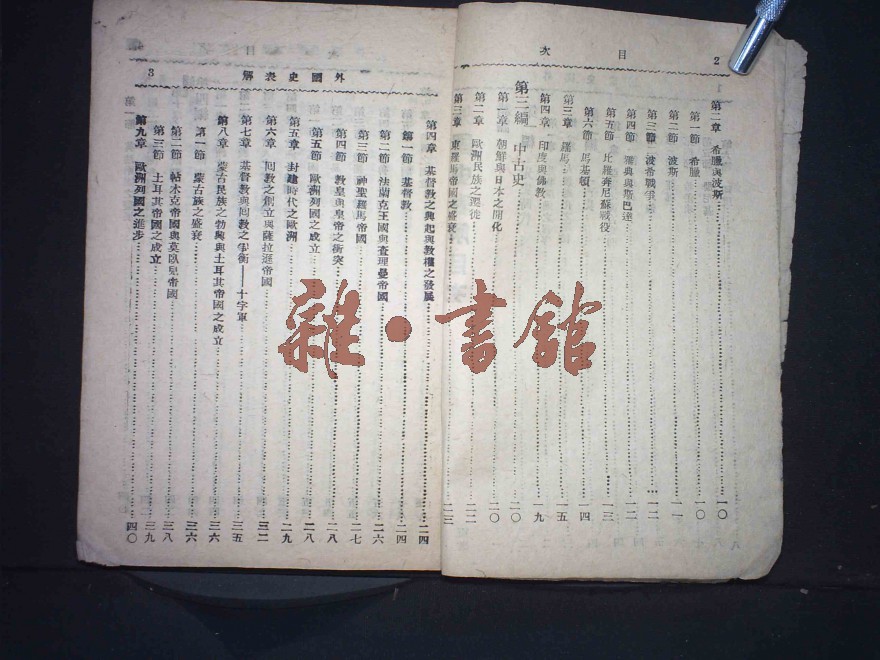 目次
2
第二章 希臘與波斯……一〇
第一節 希臘……一〇
第二節 波斯……一一
第三節 波希戰爭……一二
第四節 雅典與斯巴達……一二
第五節 比羅奔尼蘇戰役……一三
第六節 馬基頓……一四
第三章 羅馬……一五
第四章 印度與佛教……一九
第三編 中古史……二〇
第一章 朝鮮與日本之開化……二〇
第二章 歐洲民族之遷徙……二二
第三章 東羅馬帝國之盛衰……二三
外國史表解
3
第四章 基督教之興起與教權之發展……二四
第一節 基督教……二四
第二節 法蘭克王國與查理曼帝國……二六
第三節 神聖羅馬帝國……二七
第四節 教皇與皇帝之衝突……二八
第五節 歐洲列國之成立……二八
第五章 封建時代之歐洲……二九
第六章 回教之創立與薩拉遜帝國……三二
第七章 基督教與回教之爭衡——十字軍……三五
第八章 蒙古民族之勃興與土耳其帝國之成立……三六
第一節 蒙古族之盛衰……三六
第二節 帖木克帝國與莫臥兒帝國……三八
第三節 土耳其帝國之成立……三九
第九章 歐洲列國之進步……四〇
雜·書館